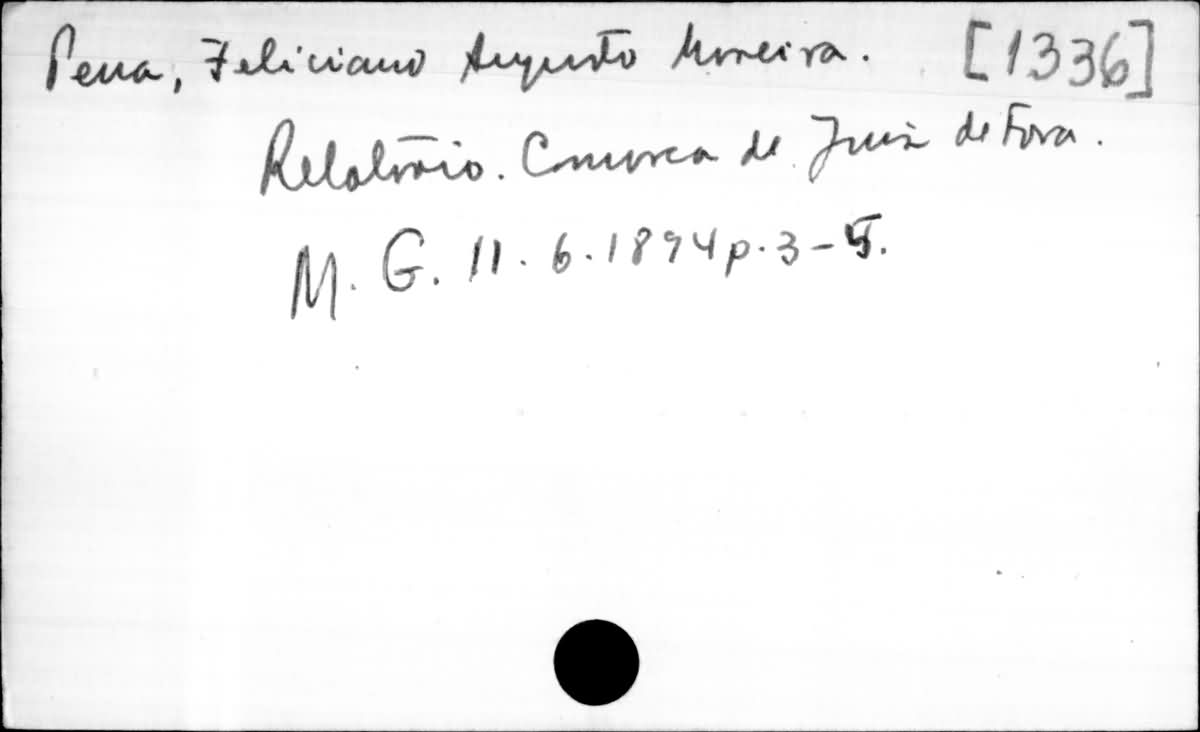 Pena, Feliciano Augusto Moreira. [1336]
Relatório. Comarca de Juiz de Fora.
M. G. 11. 6. 1894 p. 3-5.